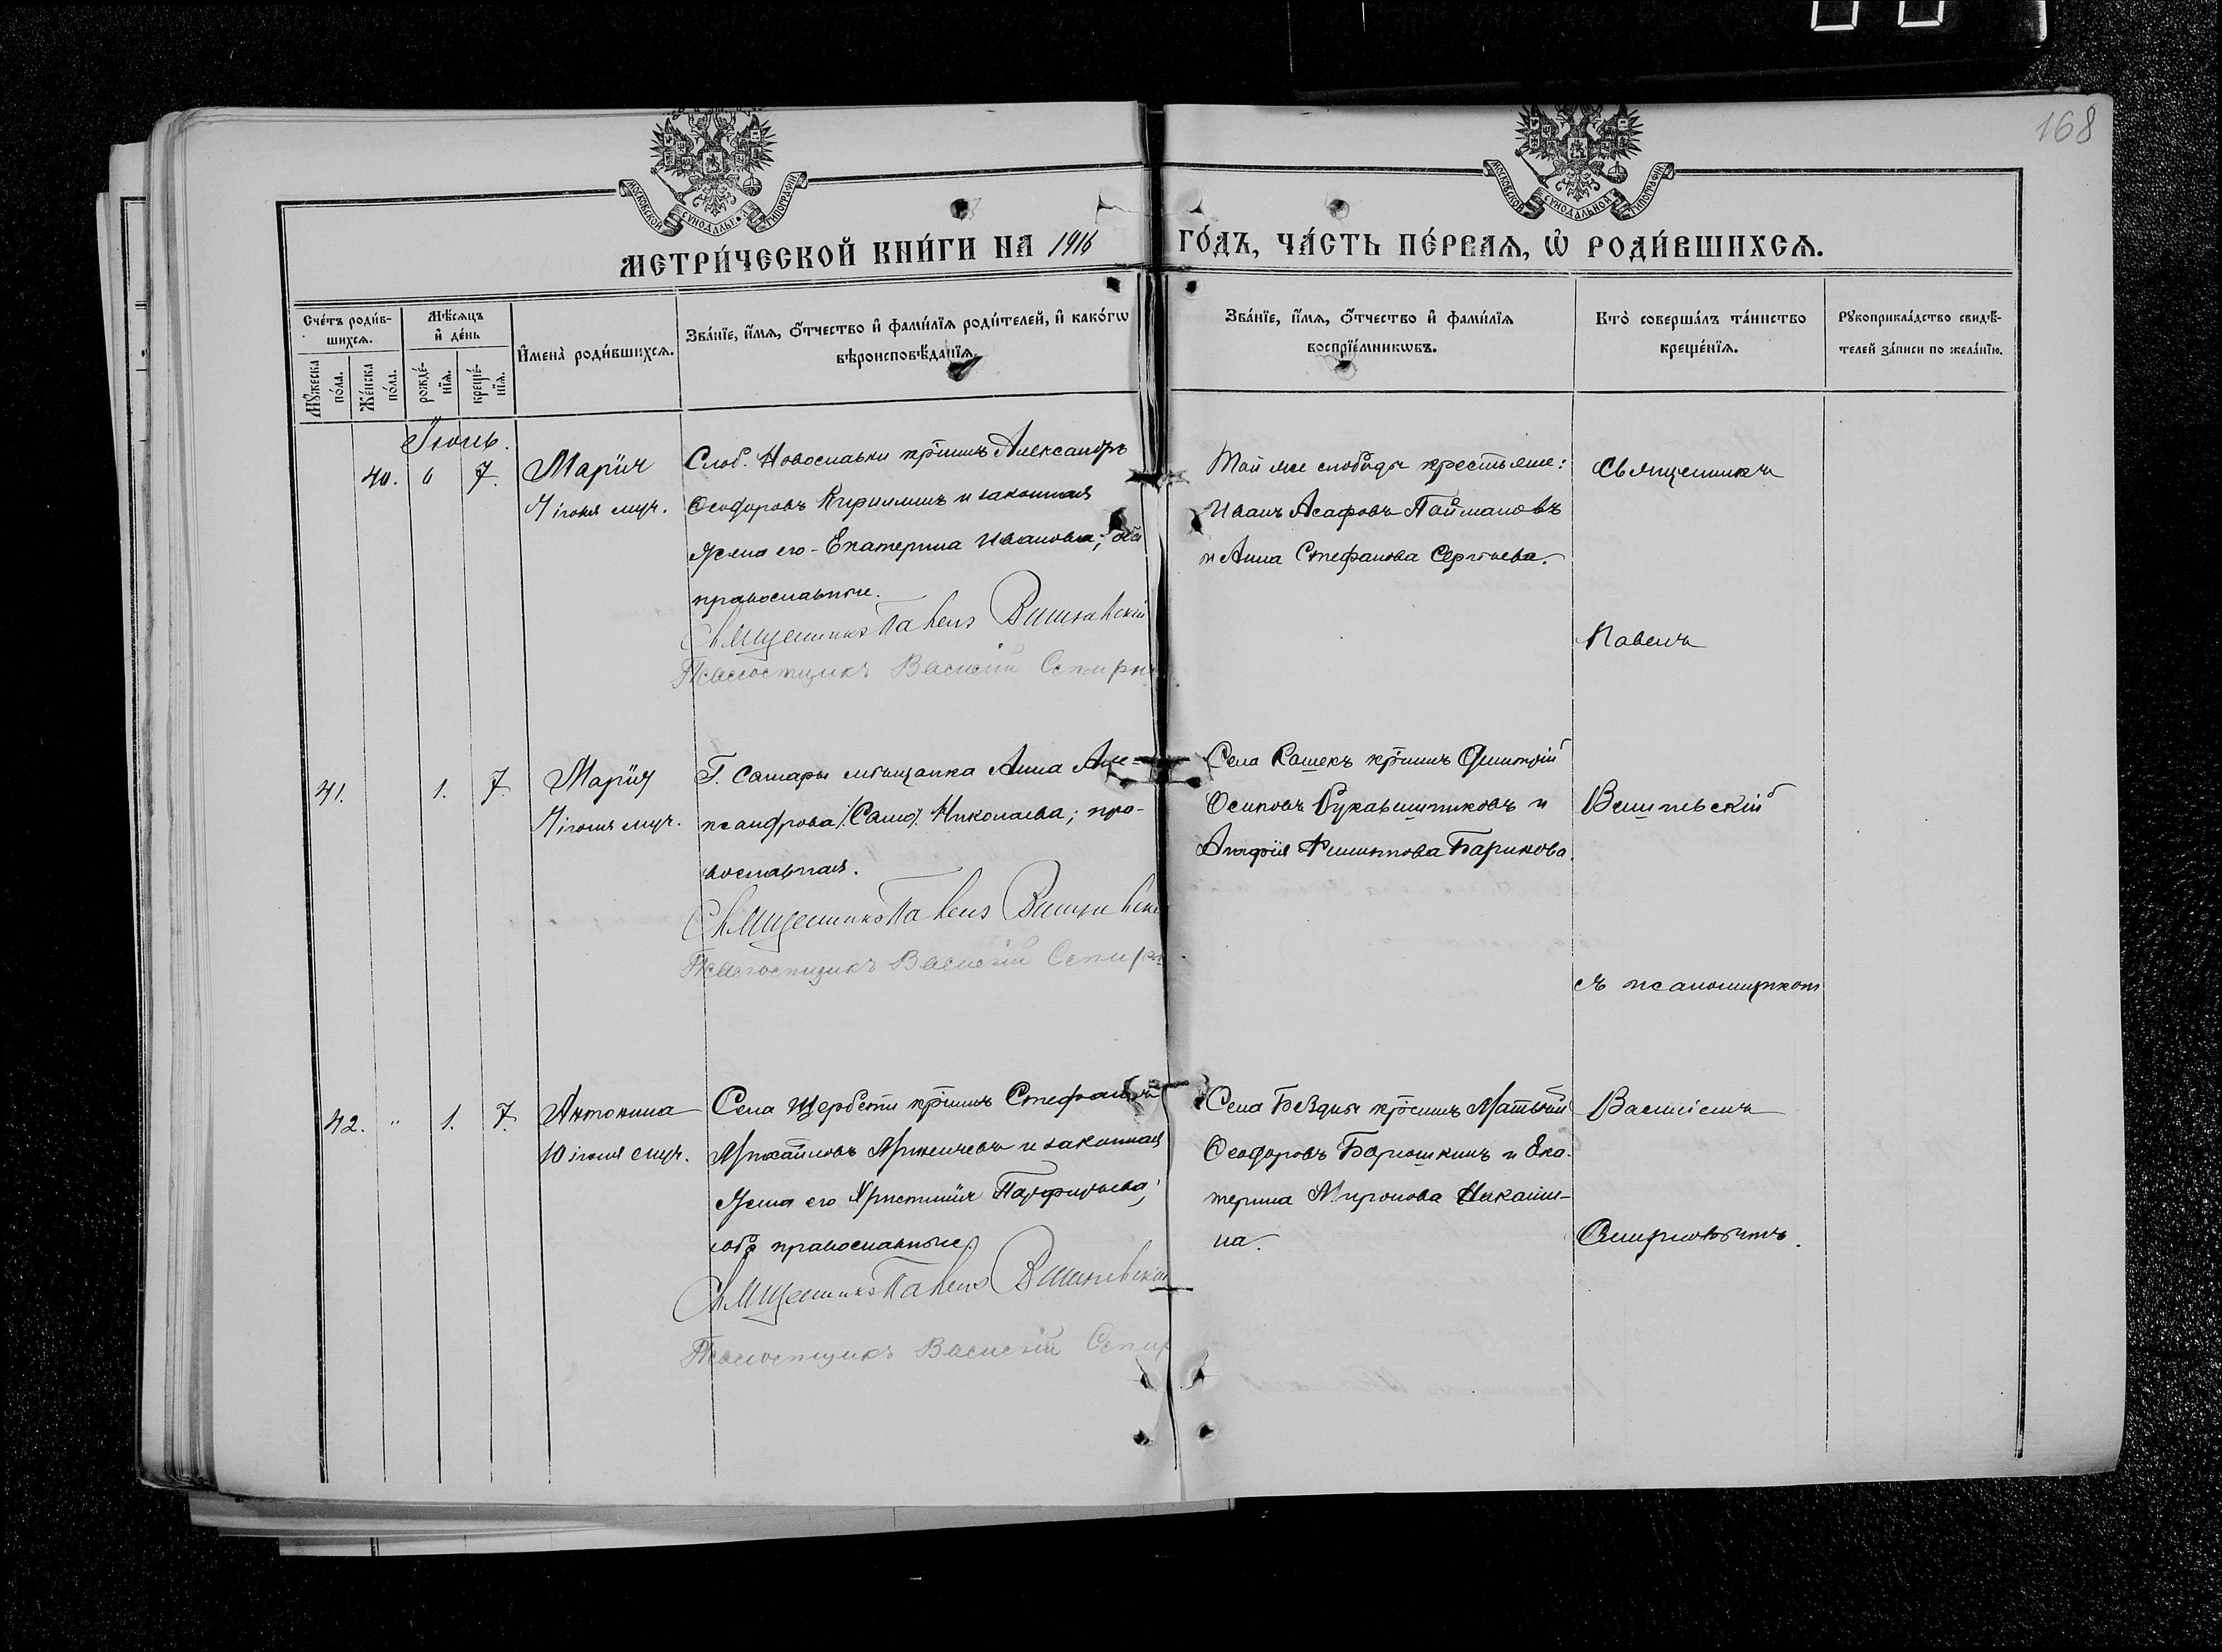 168
МОСКОВСКОЙ СѴНОДАЛЬНОЙ ТИПОГРАФІИ
МОСКОВСКОЙ СѴНОДАЛЬНОЙ ТИПОГРАФІИ
МЕТРИ́ЧЕСКОЙ КНИ́ГИ НА 1916 ГО́ДЪ, ЧА́СТЬ ПЕ́РВАЯ, Ѡ҆ РОДИ́ВШИХСѦ.
Сче́тъ роди́в-
шихсѧ.
Мꙋ́жеска по́ла.
Же́нска по́ла.
Мѣ́сѧцъ
и҆ де́нь
рожде́-
нїѧ.
креще́-
нїѧ.
И҆мена̀ роди́вшихсѧ.
Зва́нїе, и҆́мѧ, ѻ҆́тчество и҆ фами́лїѧ роди́телей, и҆ како́гѡ
вѣроисповѣ́данїѧ.
Зва́нїе, и҆́мѧ, ѻ҆́тчество и҆ фами́лїѧ
воспрїе́мникѡвъ.
Кто̀ соверша́лъ та́инство
креще́нїѧ.
Рꙋкоприкла́дство свидѣ́-
телей за́писи по жела́нїю.
40. 6 7.
Марія
7 іюня муч.
Слоб. Новославки кр-нинъ Александръ
Ѳеодоровъ Кириллинъ и законная
жена его - Екатерина Иванова; оба
православные.
Священникъ Павелъ Вишневскій
Псаломщикъ Василій
Той же слободы крестьяне:
Иванъ Асафовъ Паймановъ
и Анна Стефанова Сергѣева.
Священникъ
Павелъ
41. 1. 7.
Марія
7 іюня муч.
Г. Самары мѣщанка Анна Але-
ксандрова /Само/ Николаева; пра-
вославная.
Священникъ Павелъ
Псаломщикъ Василій
Села Кошекъ кр-нинъ Димитрій
Осиповъ Рукавишниковъ и
Агафія Филиппова Барикова.
Вишневскій
съ псаломщикомъ
42. " 1. 7.
Антонина
10 іюня муч.
Села Щербети кр-нинъ Стефанъ
Михайловъ и законная
жена его Христинія Панфилова;
оба православные.
Священникъ Павелъ Вишневскій
Псаломщикъ Василій
Села Бездны кр-нинъ Матвѣй
Ѳеодоровъ Барюшкинъ и Ека-
терина Миронова Никаши-
на.
Василіемъ